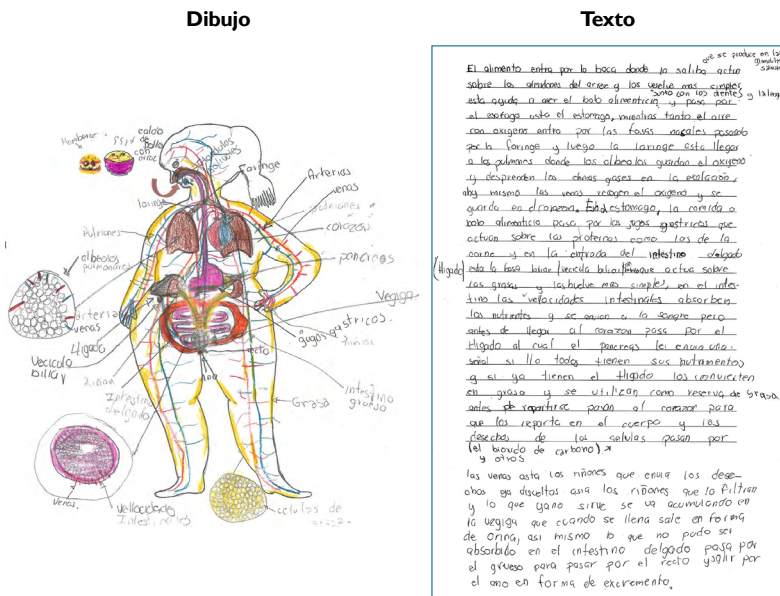 Dibujo
Hamburguesa
caldo de
pollo
con
arroz
Faringe
Arterias
venas
laringe
pulmones
corazón
Pulmones
pancreas
albeolos
pulmonares
Vegiga
arteria
venas
jugos gastricos.
Hígado
riñon
Vecicula
biliar
recto
riñon
Ano
Intestino
delgado
intestino
grueso
Grasa
venas.
vellocidades
Intestinales
celulas de
grasa.
Texto
que se produce en las
glandulas
El alimento entra por la boca donde la saliba actua
sobre los almidones del arroz y los vuelve mas simples,
junto con los dientes y la lengua
esta ayuda a aser el bolo alimenticio y pasa por
el esofago asta el estomago, mientras tanto el aire
con oxigeno entra por las fosas nasales pasando
por la faringe y luego la laringe asta llegar
a los pulmones donde los albeolos guardan el oxigeno
y desprenden los demas gases en la exalación,
ahy mismo las venas recogen el oxigeno y se
guarda en el corazon. En el estomago, la comida o
bolo alimenticio pasa por los jugos gastricos que
actuan sobre las proteinas como los de la
carne y en la entrada del intestino delgado
(Higado) esta la basa biliar/vecicula biliar/ que actua sobre
las grasas y las buelve mas simples, en el intes-
tino las "velocidades intestinales absorben
los nutrientes y se envian a la sangre pero
antes de llegar al corazon pasa por el
Higado al cual el pancreas le envia una
señal si llo todos tienen sus nutrimentos
y si ya tienen el Higado los convierten
en grasa y se utilizan como reserva de grasa,
antes de repartirse pasan al corazon para
que los reparta en el cuerpo y los
desechos de las celulas pasan por
(el bioxido de carbono) *
y otros
las venas asta los riñones que envia los dese-
chos ya disueltos asia los riñones que lo filtran
y lo que yano sirve se va acumulando en
la vegiga que cuando se llena sale en forma
de orina, asi mismo lo que no pudo ser
absorbido en el intestino delgado pasa por
el grueso para pasar por el recto y salir por
el ano en forma de excremento.